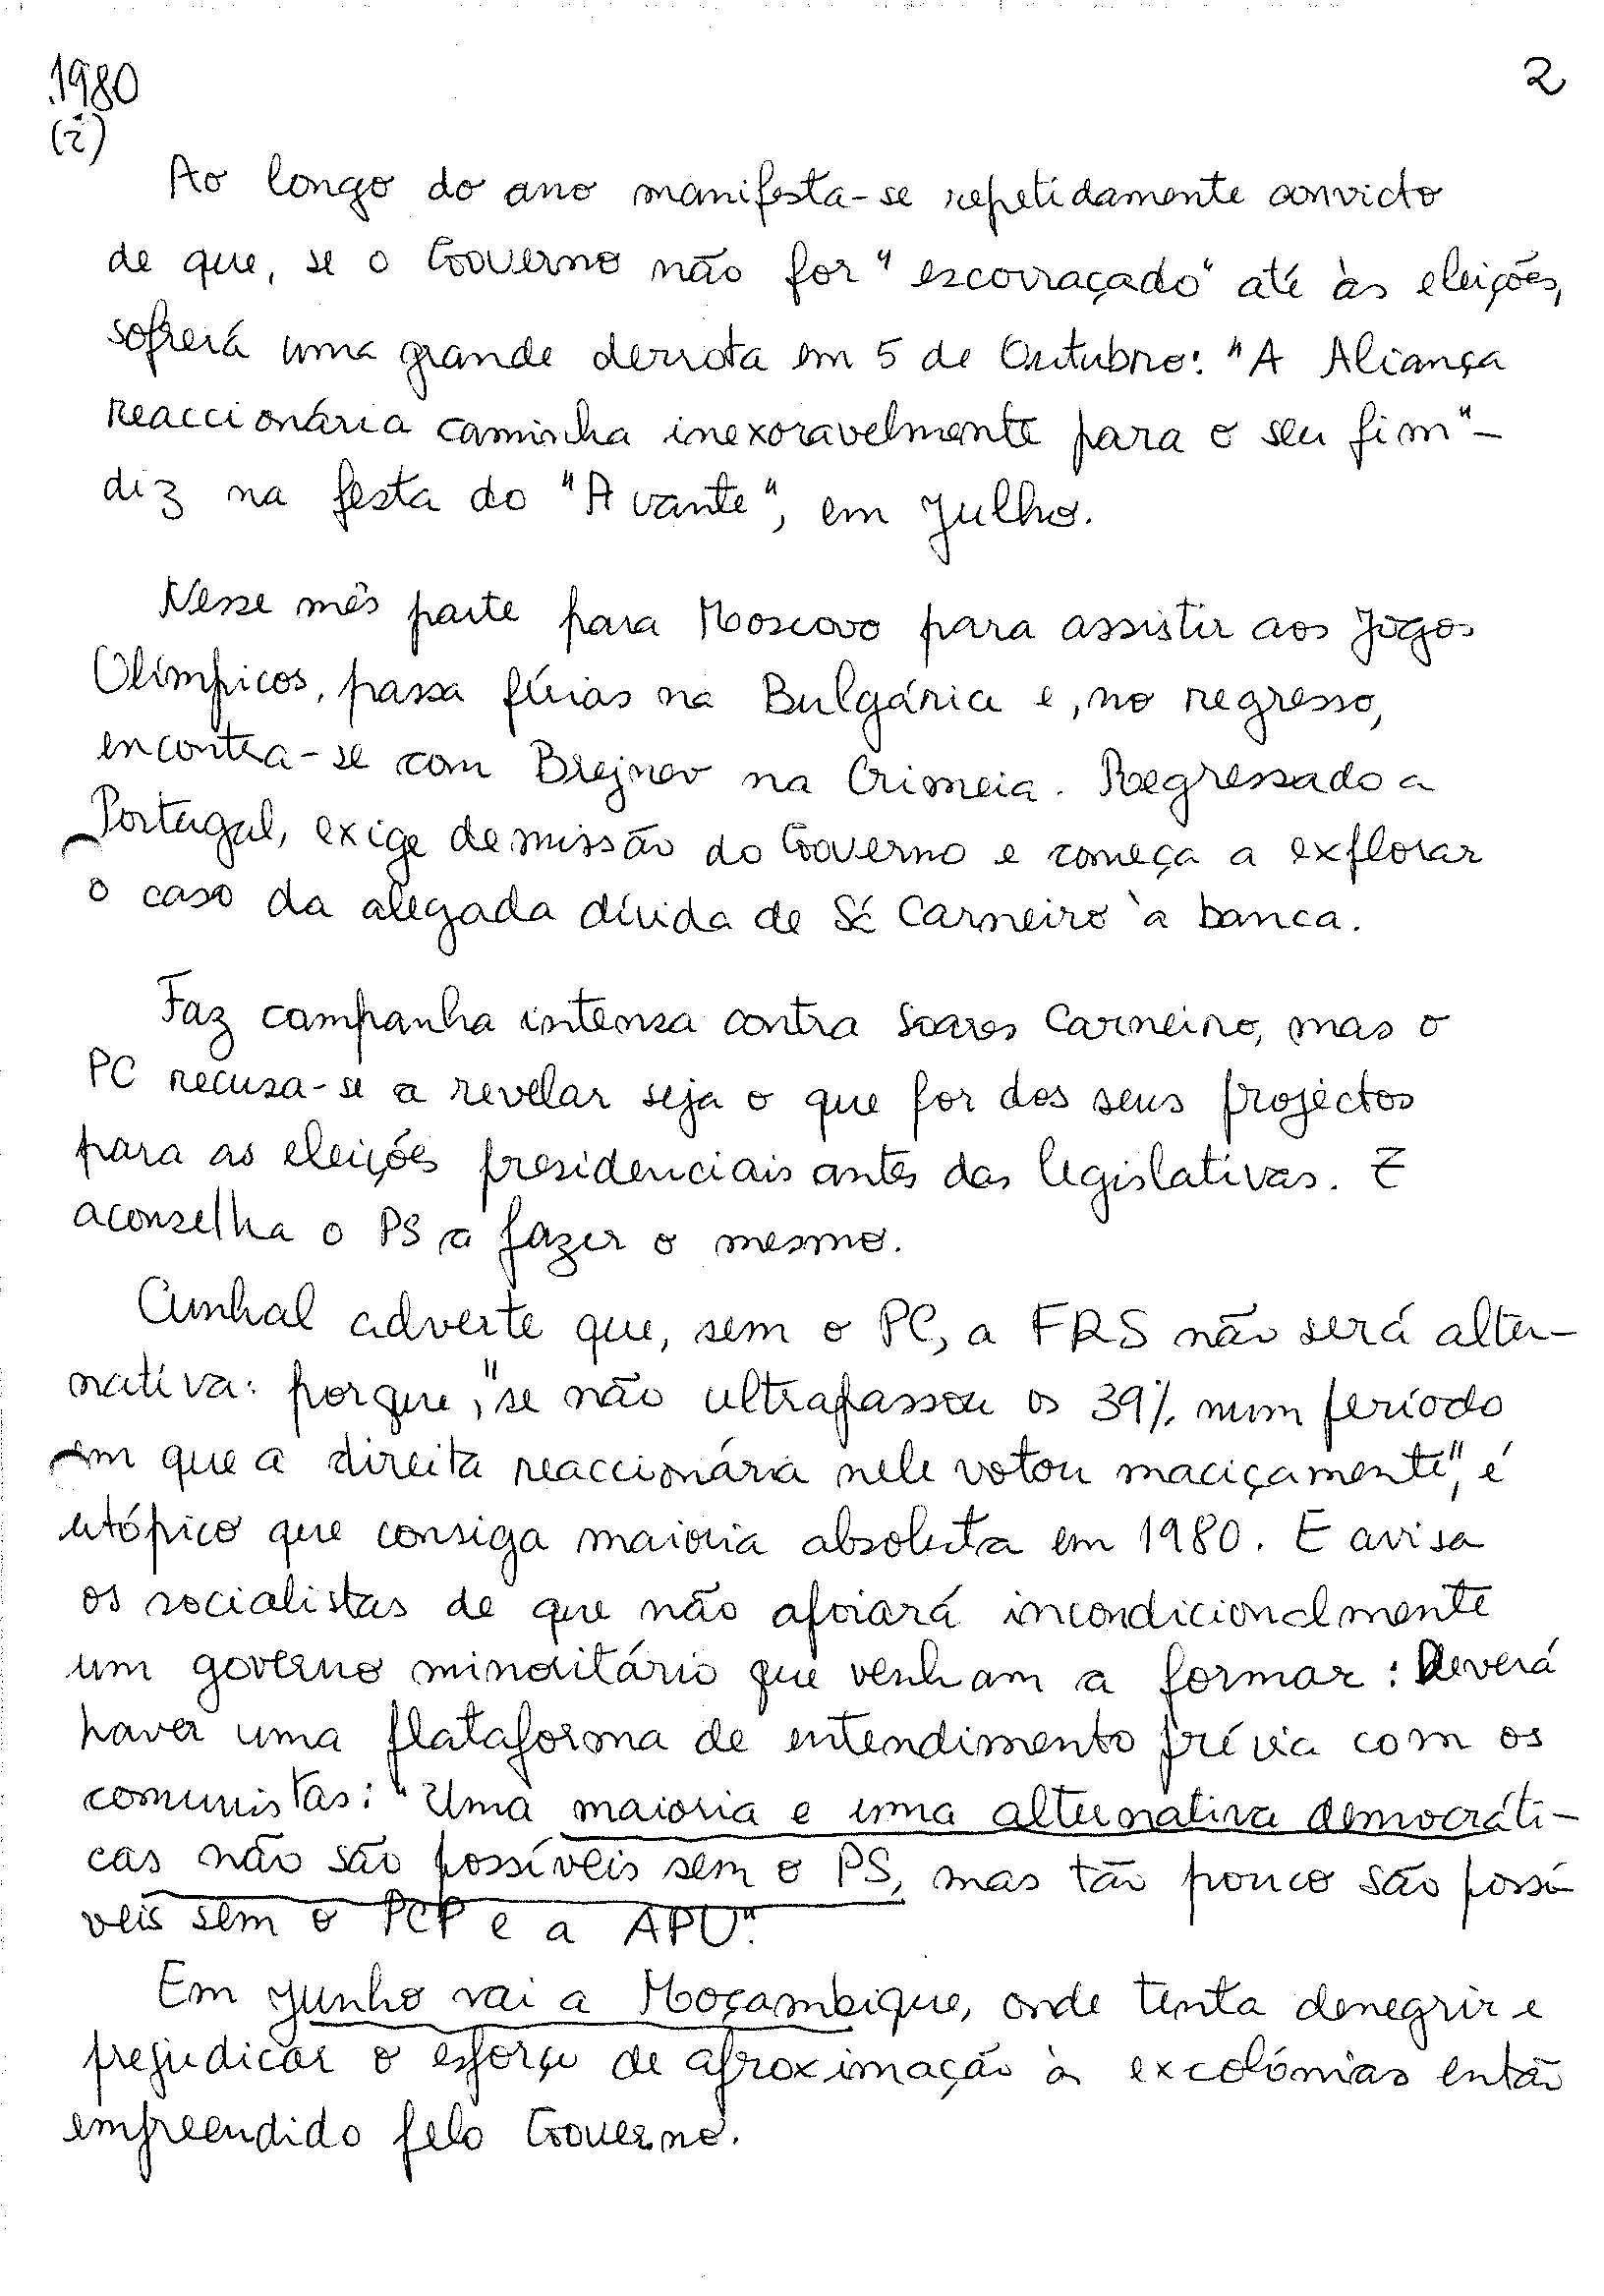 1980
2
(2)
Ao longo do ano manifesta-se repetidamente convicto
de que, se o Governo não for "escorraçado" até às eleições,
sofrerá uma grande derrota em 5 de Outubro: "A Aliança
reaccionária caminha inexoravelmente para o seu fim" -
diz na festa do "Avante", em Julho.
Nesse mês parte para Moscovo para assistir aos Jogos
Olímpicos, passa férias na Bulgária e, no regresso,
encontra-se com Brejnev na Crimeia. Regressado a
Portugal, exige demissão do Governo e começa a explorar
o caso da alegada dívida de Sá Carneiro à banca.
Faz campanha intensa contra Soares Carneiro, mas o
PC recusa-se a revelar seja o que for dos seus projectos
para as eleições presidenciais antes das legislativas. E
aconselha o PS a fazer o mesmo.
Cunhal adverte que, sem o PC, a FRS não será alter-
nativa: porque, "se não ultrapassou os 39% num período
em que a direita reaccionária nele votou maciçamente", é
utópico que consiga maioria absoluta em 1980. E avisa
os socialistas de que não apoiará incondicionalmente
um governo minoritário que venham a formar: Deverá
haver uma plataforma de entendimento prévia com os
comunistas: "Uma maioria e uma alternativa democráti-
cas não são possíveis sem o PS, mas tão pouco são possí-
veis sem o PCP e a APU".
Em Junho vai a Moçambique, onde tenta denegrir e
prejudicar o esforço de aproximação às excolónias então
empreendido pelo Governo.